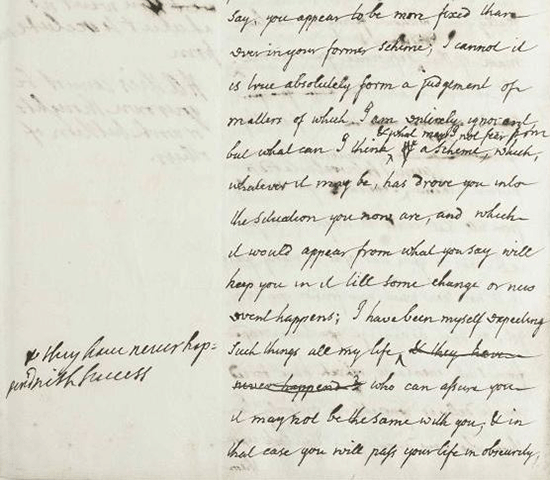 say, you appear to be more fixed than
ever in your former scheme; I cannot it
is true absolutely form a judgement of
matters of which I am entirely ignorant,
& what may I not fear from
but what can I think ^ of a scheme, which,
whatever it may be, has drove you into
the situation you now are, and which
it would appear from what you say will
keep you in it till some change or new
event happens; I have been myself expecting
such things all my life ^ & they have
never happend & who can assure you
it may not be the same with you, & in
that case you will pass your life in obscurity,
& they have never hap=
pend with success